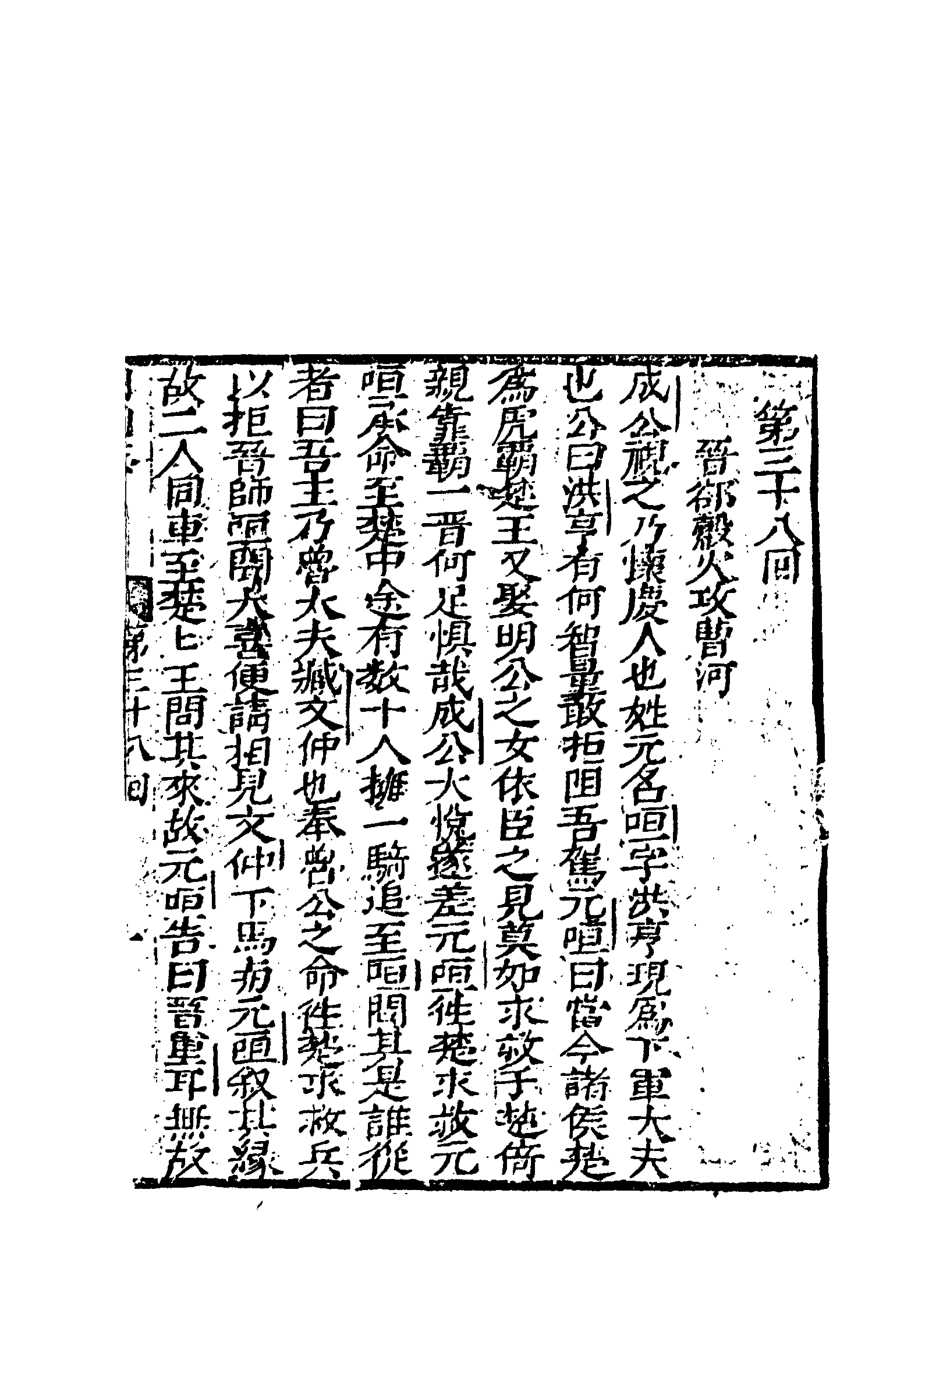 第三十八回
晉郤縠火攻曹河
成公視之乃懷慶人也姓元名咺字洪亨現爲下軍大夫
也公曰洪亨有何智量敢拒阻吾駕元咺曰當今諸侯楚
爲虎霸楚王又娶明公之女依臣之見莫如求救于楚倚
親靠霸一晉何足惧哉成公大悅遂差元咺徃楚求救元
咺承命至楚中途有数十人擁一騎追至咺問其是誰從
者曰吾主乃魯大夫臧文仲也奉魯公之命徃楚求救兵
以拒晉師咺聞大喜便請相見文仲下馬與元咺叙其縁
故二人同車至楚匕王問其來故元咺告曰晉重耳無故
第三十八回
一